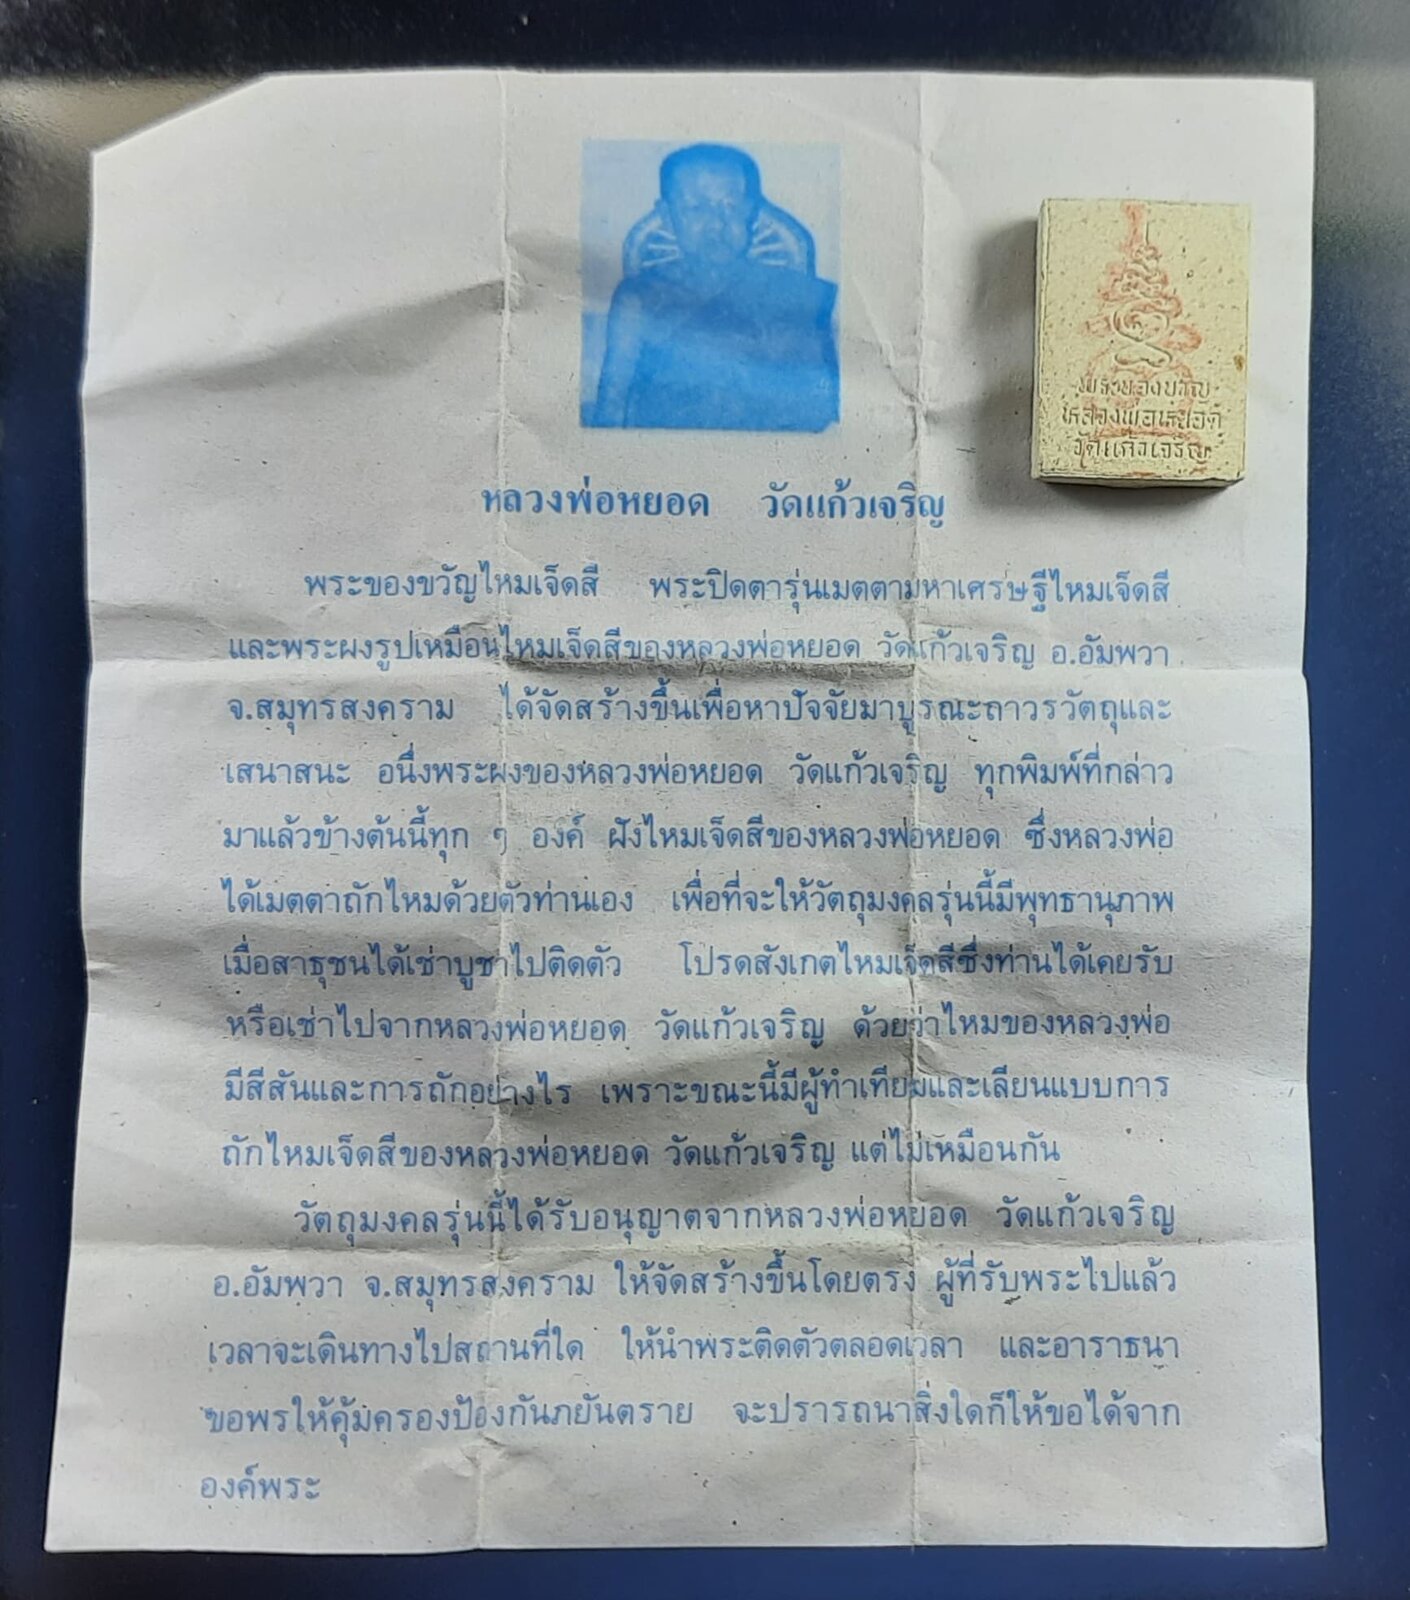 หลวงพ่อหยอด วัดแก้วเจริญ
พระของขวัญไหมเจ็ดสี พระปิดตารุ่นเมตตามหาเศรษฐีไหมเจ็ดสี
และพระผงรูปเหมือนไหมเจ็ดสีของหลวงพ่อหยอด วัดแก้วเจริญ อ.อัมพวา
จ.สมุทรสงคราม ได้จัดสร้างขึ้นเพื่อหาปัจจัยมาบูรณะถาวรวัตถุและ
เสนาสนะ อนึ่งพระผงของหลวงพ่อหยอด วัดแก้วเจริญ ทุกพิมพ์ที่กล่าว
มาแล้วข้างต้นนี้ทุก ๆ องค์ ฝังไหมเจ็ดสีของหลวงพ่อหยอด ซึ่งหลวงพ่อ
ได้เมตตาถักไหมด้วยตัวท่านเอง เพื่อที่จะให้วัตถุมงคลรุ่นนี้มีพุทธานุภาพ
เมื่อสาธุชนได้เช่าบูชาไปติดตัว โปรดสังเกตไหมเจ็ดสีซึ่งท่านได้เคยรับ
หรือเช่าไปจากหลวงพ่อหยอด วัดแก้วเจริญ ด้วยว่าไหมของหลวงพ่อ
มีสีสันและการถักอย่างไร เพราะขณะนี้มีผู้ทำเทียมและเลียนแบบการ
ถักไหมเจ็ดสีของหลวงพ่อหยอด วัดแก้วเจริญ แต่ไม่เหมือนกัน
วัตถุมงคลรุ่นนี้ได้รับอนุญาตจากหลวงพ่อหยอด วัดแก้วเจริญ
อ.อัมพวา จ.สมุทรสงคราม ให้จัดสร้างขึ้นโดยตรง ผู้ที่รับพระไปแล้ว
เวลาจะเดินทางไปสถานที่ใด ให้นำพระติดตัวตลอดเวลา และอาราธนา
ขอพรให้คุ้มครองป้องกันภยันตราย จะปรารถนาสิ่งใดก็ให้ขอได้จาก
องค์พระ
พระของขวัญ
หลวงพ่อหยอด
วัดแก้วเจริญ